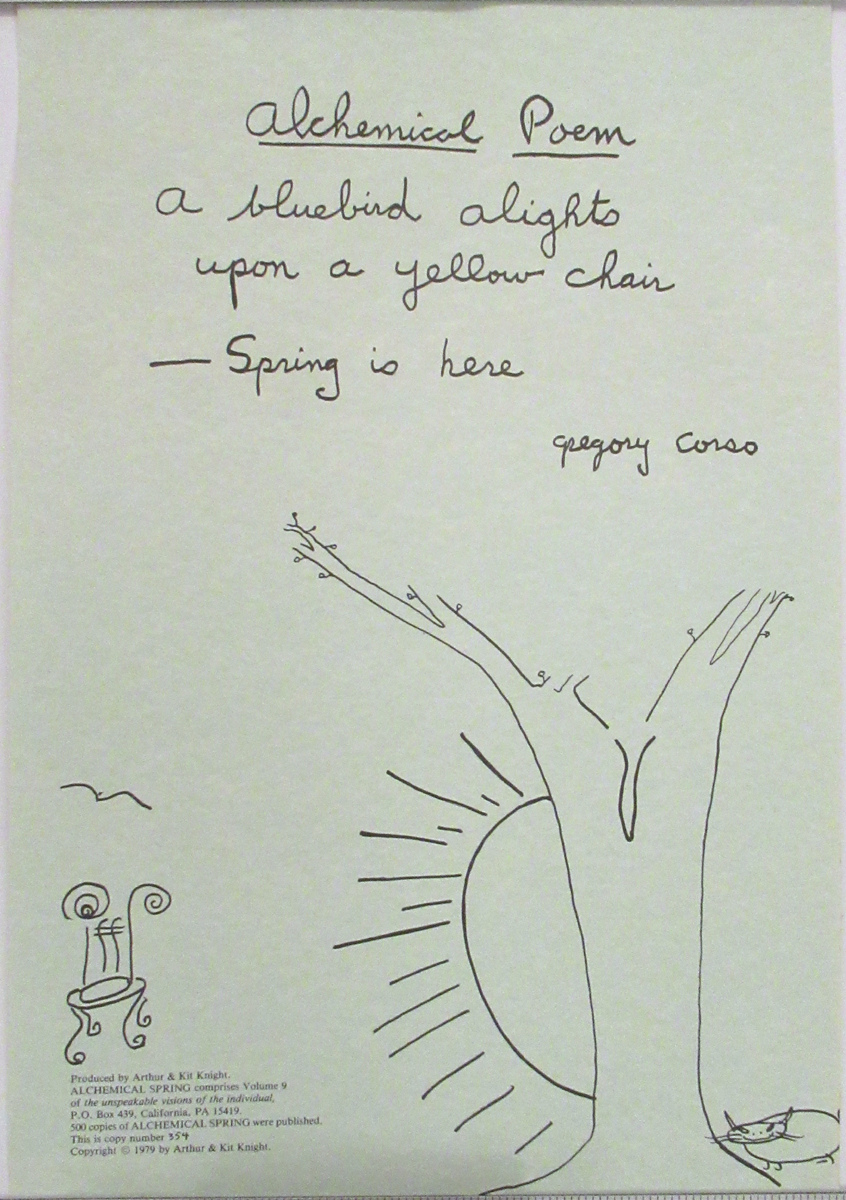 Alchemical Poem
a bluebird alights
upon a yellow chair
— Spring is here
gregory corso
Produced by Arthur & Kit Knight.
ALCHEMICAL SPRING comprises Volume 9
of the unspeakable visions of the individual,
P.O. Box 439, California, PA 15419.
500 copies of ALCHEMICAL SPRING were published.
This is copy number 354
Copyright © 1979 by Arthur & Kit Knight.